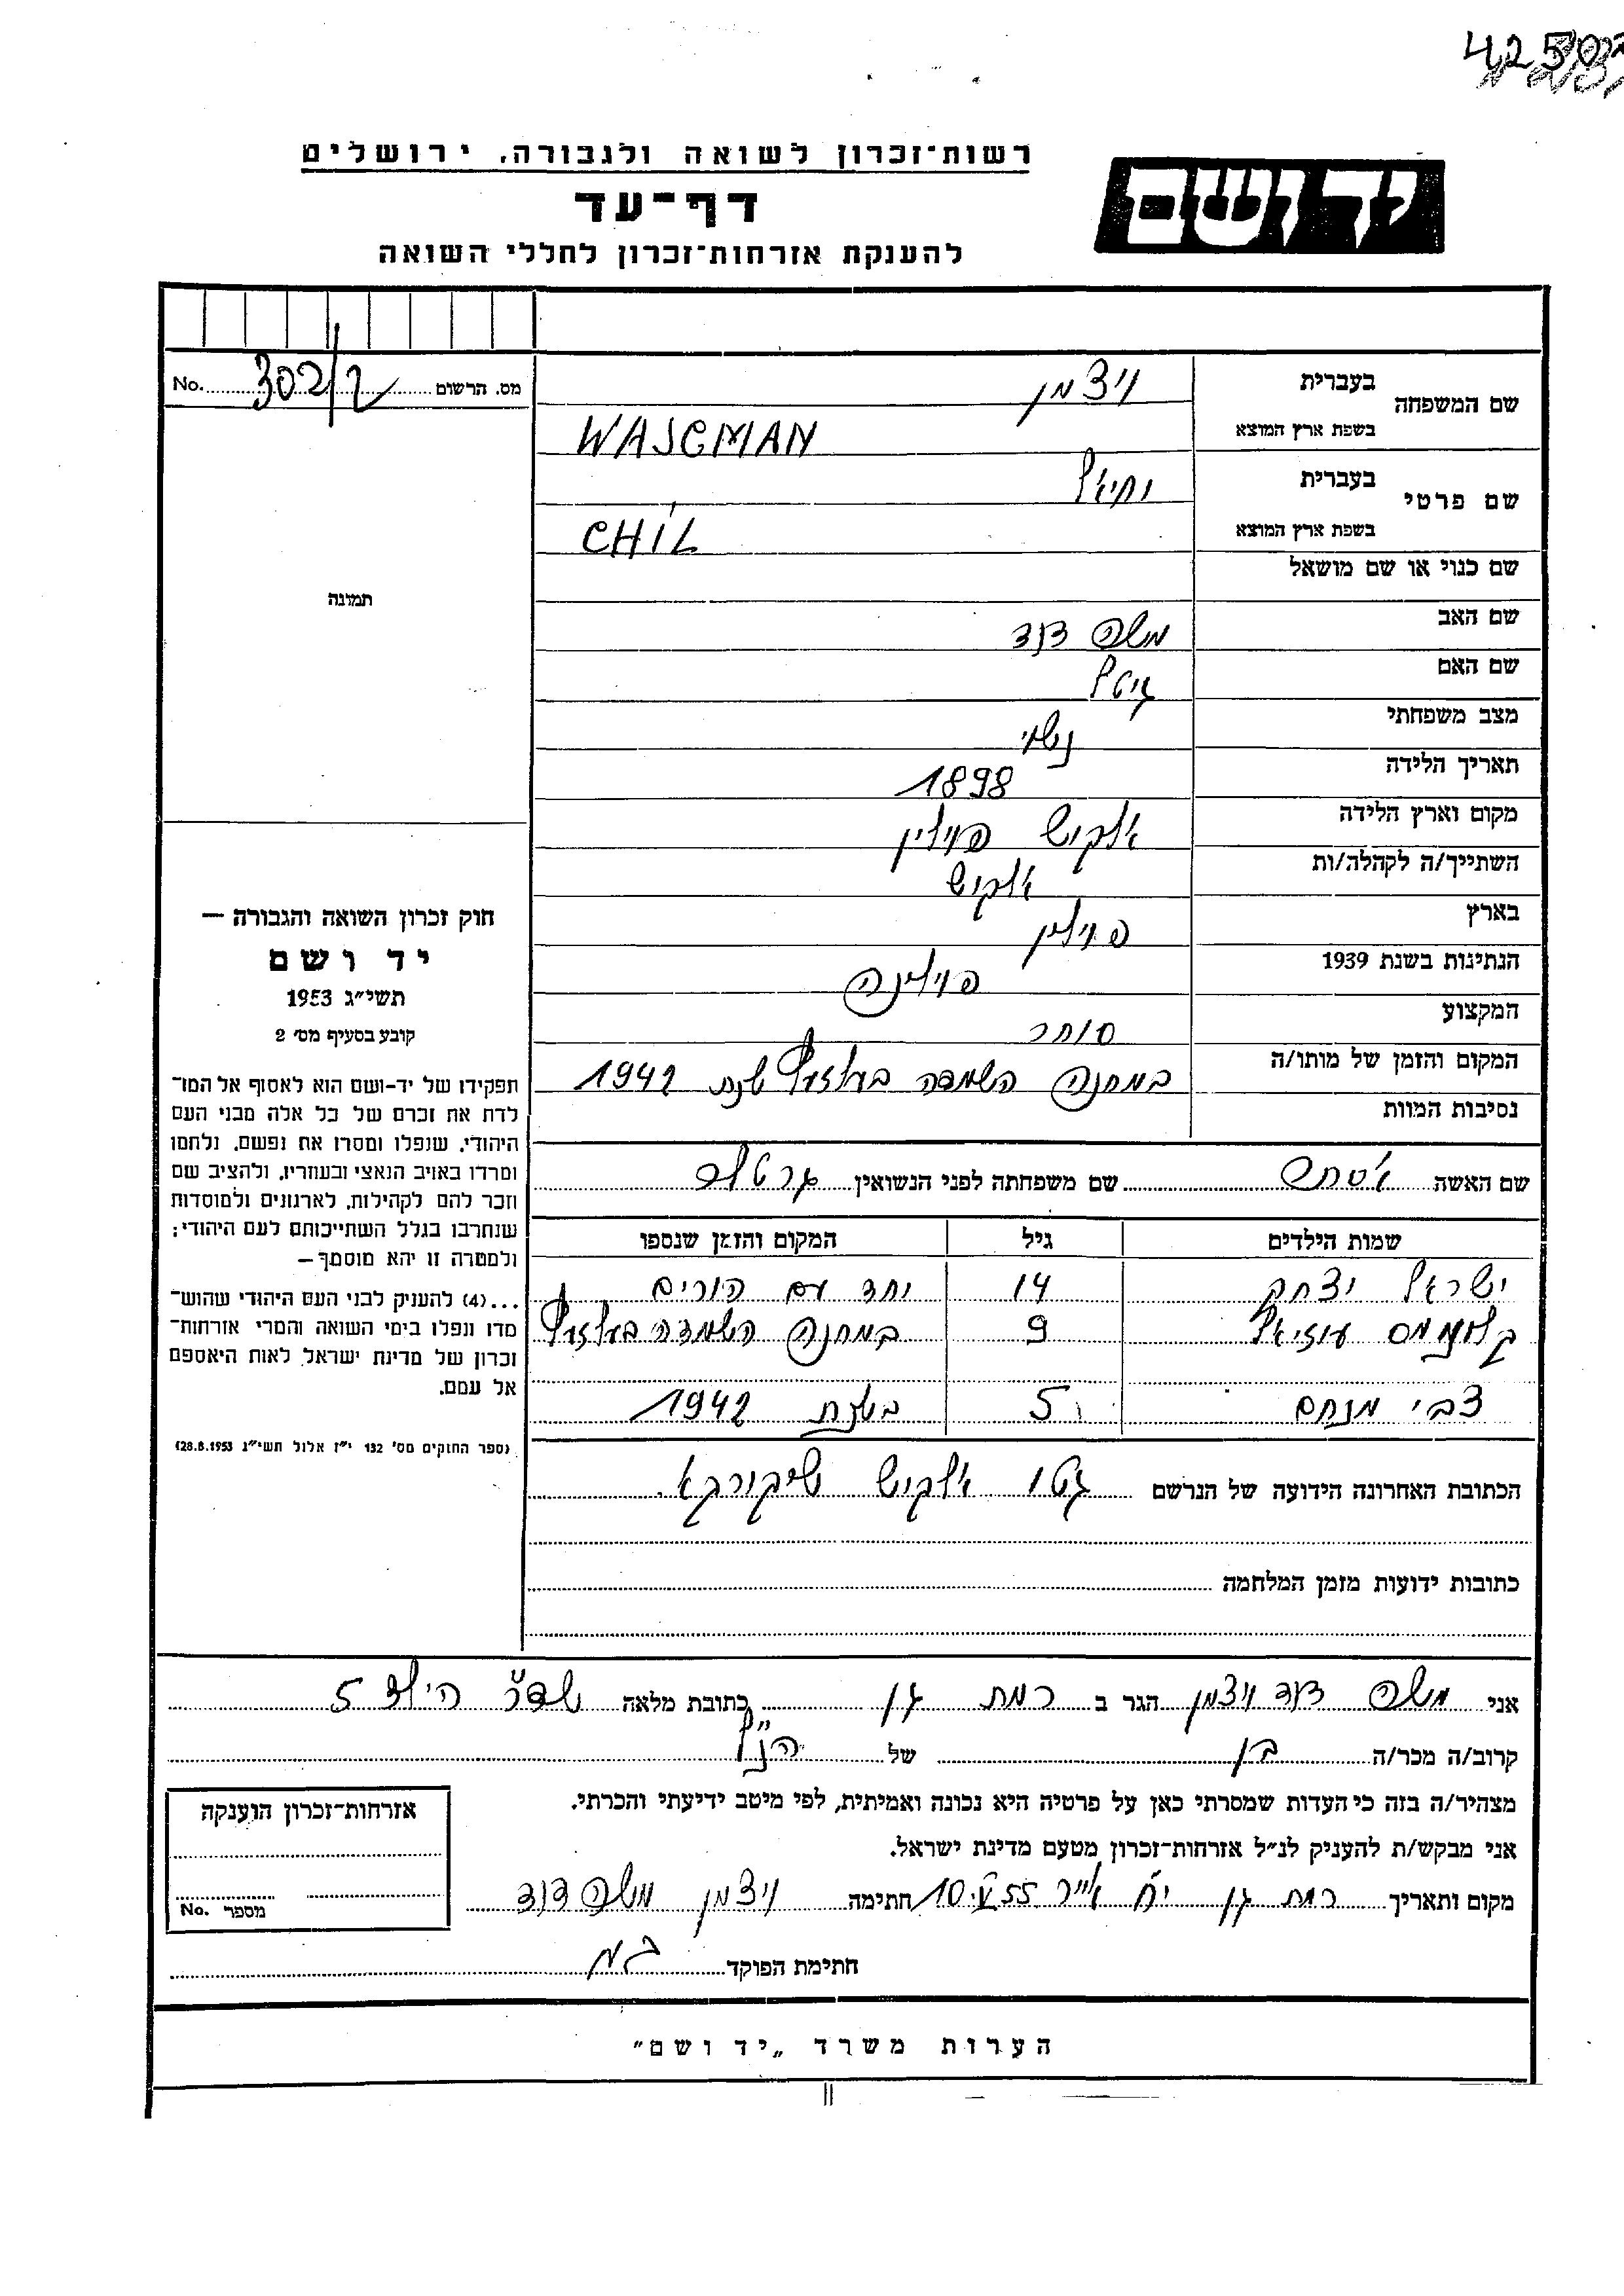 רשות־זכרון לשואה ולגבורה, ירושלים
דף־עד
להענקת אזרחות־זכרון לחללי השואה
יד ושם
No. 302/2 מס. הרשום
שם המשפחה בעברית ויצמן
בשפת ארץ המוצא WAJCMAN
שם פרטי בעברית יחיאל
בשפת ארץ המוצא CHIL
שם כנוי או שם מושאל
שם האב משה דוד
שם האם גיטל
מצב משפחתי נשוי
תאריך הלידה 1898
מקום וארץ הלידה אלקוש פוילין
השתייך/ה לקהלה/ות אלקוש
בארץ פוילין
הנתינות בשנת 1939 פוילנה
המקצוע סוחר
המקום והזמן של מותו/ה במחנה השמדה בעלזעץ שנת 1942
נסיבות המוות
שם האשה אסתר שם משפחתה לפני הנשואין
שמות הילדים גיל המקום והזמן שנספו
ישראל יצחק 14 יחד עם הורים
עוזיאל 9 במחנה השמדה בעלזעץ
צבי מנחם 5 בשנת 1942
הכתובת האחרונה הידועה של הנרשם גטו אלקוש
כתובות ידועות מזמן המלחמה
תמונה
חוק זכרון השואה והגבורה —
יד ושם
תשי״ג 1953
קובע בסעיף מס׳ 2
תפקידו של יד-ושם הוא לאסוף אל המו־
לדת את זכרם של כל אלה מבני העם
היהודי, שנפלו ומסרו את נפשם, נלחמו
ומרדו באויב הנאצי ובעוזריו, ולהציב שם
וזכר להם לקהילות, לארגונים ולמוסדות
שנחרבו בגלל השתייכותם לעם היהודי;
ולמטרה זו יהא מוסמך —
...(4) להעניק לבני העם היהודי שהוש־
מדו ונפלו בימי השואה והמרי אזרחות־
זכרון של מדינת ישראל לאות היאספם
אל עמם.
(ספר החוקים מס׳ 132 י״ז אלול תשי״ג 28.8.1953)
אני משה דוד ויצמן הגר ב רמת גן כתובת מלאה 5
קרוב/ה מכר/ה בן של הנ״ל
מצהיר/ה בזה כי העדות שמסרתי כאן על פרטיה היא נכונה ואמיתית, לפי מיטב ידיעתי והכרתי.
אני מבקש/ת להעניק לנ״ל אזרחות־זכרון מטעם מדינת ישראל.
מקום ותאריך רמת גן י״ח אייר 10.V.55 חתימה ויצמן משה דוד
חתימת הפוקד
אזרחות־זכרון הוענקה
No. מספר
הערות משרד „יד ושם״